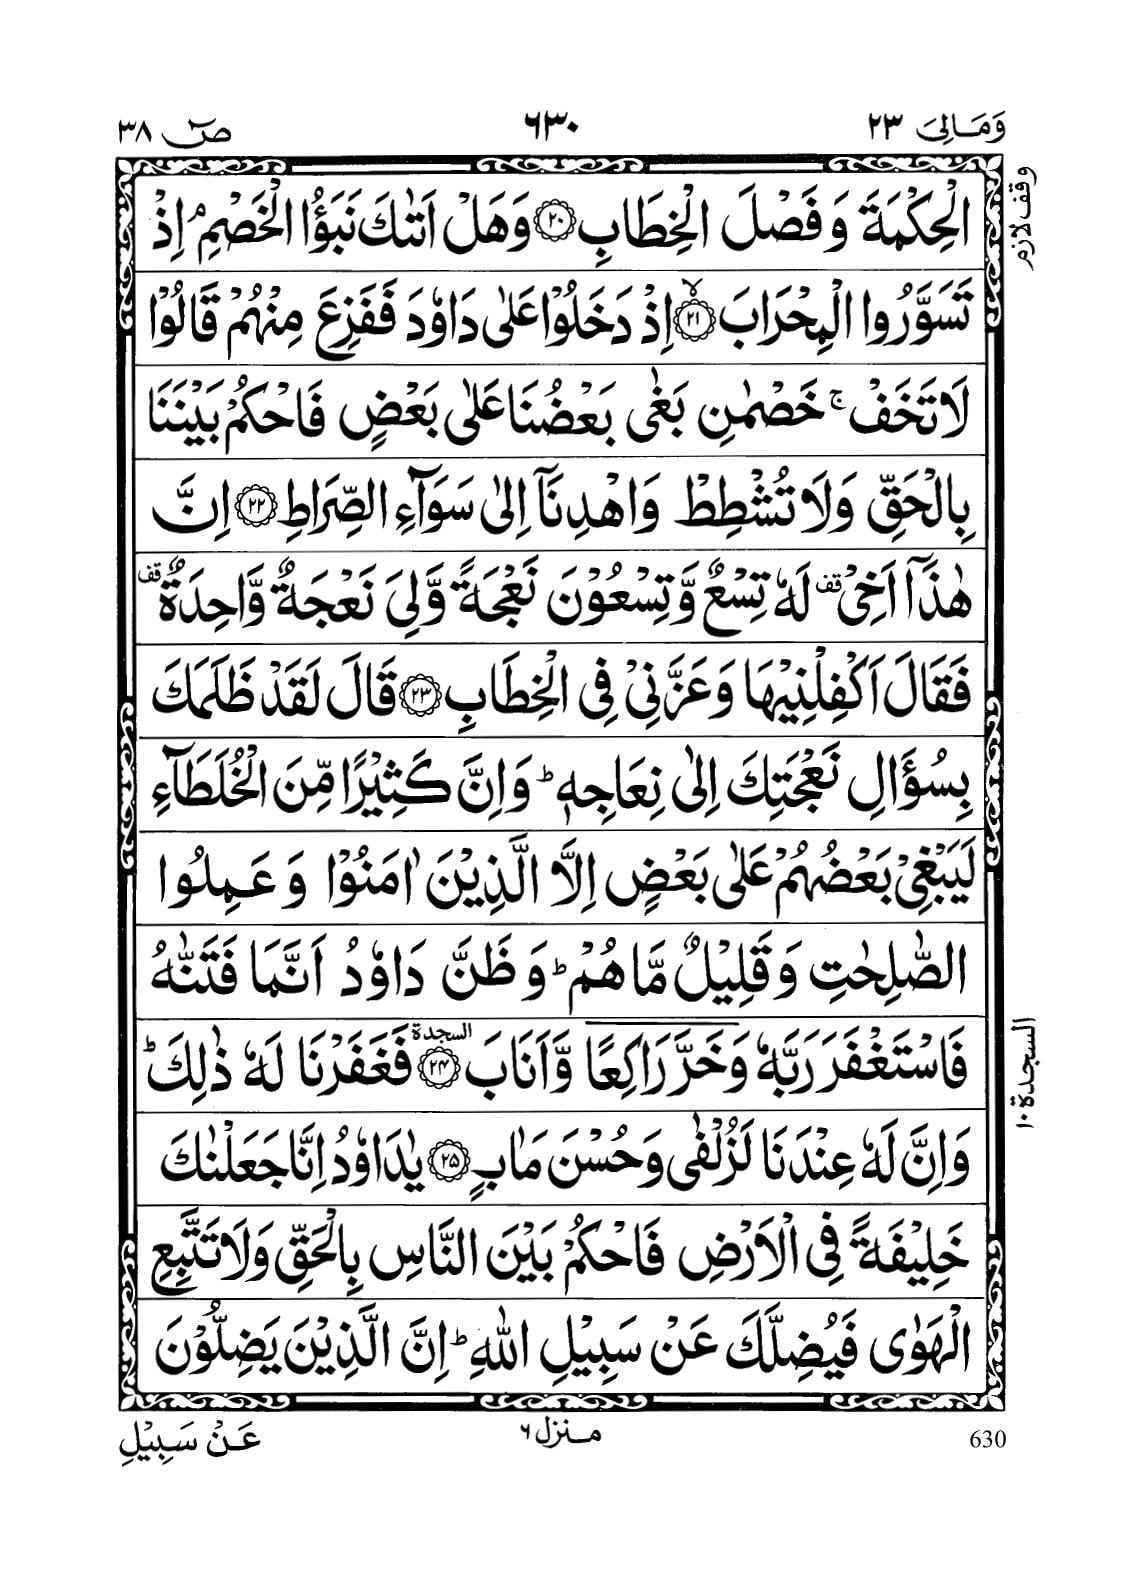 وَمَالِىَ ٢٣ ٦٣٠ صٓ ٣٨
وقف لازم
الْحِكْمَةَ وَفَصْلَ الْخِطَابِ ﴿٢٠﴾ وَهَلْ اَتٰىكَ نَبَؤُا الْخَصْمِ ۘ اِذْ
تَسَوَّرُوا الْمِحْرَابَ ﴿٢١﴾ۙ اِذْ دَخَلُوْا عَلٰى دَاوٗدَ فَفَزِعَ مِنْهُمْ قَالُوْا
لَا تَخَفْ ۚ خَصْمٰنِ بَغٰى بَعْضُنَا عَلٰى بَعْضٍ فَاحْكُمْ بَيْنَنَا
بِالْحَقِّ وَلَا تُشْطِطْ وَاهْدِنَاۤ اِلٰى سَوَآءِ الصِّرَاطِ ﴿٢٢﴾ اِنَّ
هٰذَاۤ اَخِىْ قف لَهٗ تِسْعٌ وَّتِسْعُوْنَ نَعْجَةً وَّلِىَ نَعْجَةٌ وَّاحِدَةٌ قف
فَقَالَ اَكْفِلْنِيْهَا وَعَزَّنِىْ فِى الْخِطَابِ ﴿٢٣﴾ قَالَ لَقَدْ ظَلَمَكَ
بِسُؤَالِ نَعْجَتِكَ اِلٰى نِعَاجِهٖ ؕ وَاِنَّ كَثِيْرًا مِّنَ الْخُلَطَآءِ
لَيَبْغِىْ بَعْضُهُمْ عَلٰى بَعْضٍ اِلَّا الَّذِيْنَ اٰمَنُوْا وَعَمِلُوا
الصّٰلِحٰتِ وَقَلِيْلٌ مَّا هُمْ ؕ وَظَنَّ دَاوٗدُ اَنَّمَا فَتَنّٰهُ
فَاسْتَغْفَرَ رَبَّهٗ وَخَرَّ رَاكِعًا وَّاَنَابَ ﴿٢٤﴾ السجدة فَغَفَرْنَا لَهٗ ذٰلِكَ ؕ
السجدة ١٠
وَاِنَّ لَهٗ عِنْدَنَا لَزُلْفٰى وَحُسْنَ مَاٰبٍ ﴿٢٥﴾ يٰدَاوٗدُ اِنَّا جَعَلْنٰكَ
خَلِيْفَةً فِى الْاَرْضِ فَاحْكُمْ بَيْنَ النَّاسِ بِالْحَقِّ وَلَا تَتَّبِعِ
الْهَوٰى فَيُضِلَّكَ عَنْ سَبِيْلِ اللّٰهِ ؕ اِنَّ الَّذِيْنَ يَضِلُّوْنَ
630 منزل ٦ عَنْ سَبِيْلِ